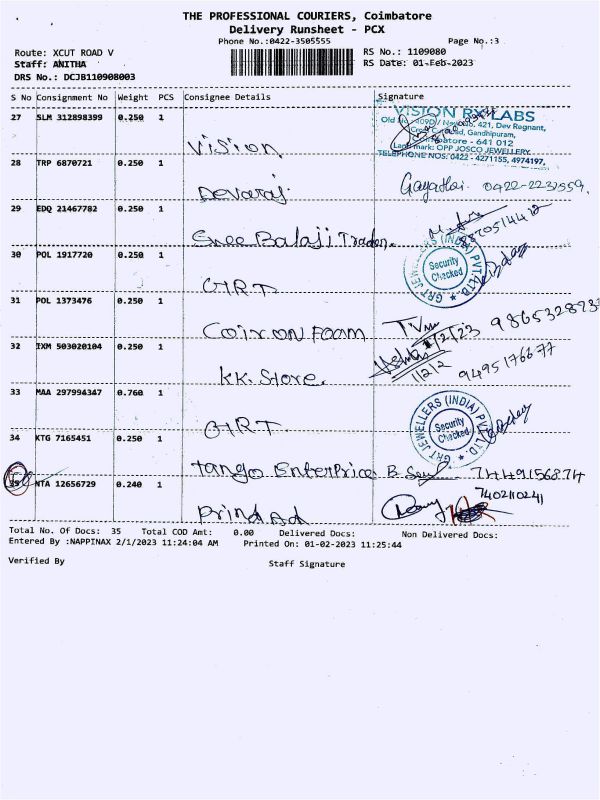 THE PROFESSIONAL COURIERS, Coimbatore
Delivery Runsheet - PCX
Phone No.:0422-3505555
Page No.:3
Route: XCUT ROAD V
RS No.: 1109080
Staff: ANITHA
RS Date: 01-Feb-2023
DRS No.: DCJB110908003
S No Consignment No Weight PCS Consignee Details Signature
27 SLM 312898399 0.250 1 Vision
VISION RX LABS
Old No. 409D / New No. 421, Dev Regnant,
Cross Cut Road, Gandhipuram,
Coimbatore - 641 012
Land mark: OPP JOSCO JEWELLERY
TELEPHONE NOS: 0422 - 4271155, 4974197,
28 TRP 6870721 0.250 1 Devaraj Gayathri 0422-2232559.
29 EDQ 21467782 0.250 1 Sree Balaji Trader.
30 POL 1917720 0.250 1 GRT
GRT JEWELLERS (INDIA) PVT. LTD
Security
Checked
31 POL 1373476 0.250 1 Coiron Foam
1/2/23
32 IXM 503020104 0.250 1 KK. Store. 11212 9495176677
33 MAA 297994347 0.760 1 GRT
GRT JEWELLERS (INDIA) PVT. LTD
Security
Checked
34 KTG 7165451 0.250 1 Tango Enterprice
35 NTA 12656729 0.240 1 Print Ad 7402110241
Total No. Of Docs: 35 Total COD Amt: 0.00 Delivered Docs: Non Delivered Docs:
Entered By :NAPPINAX 2/1/2023 11:24:04 AM Printed On: 01-02-2023 11:25:44
Verified By
Staff Signature